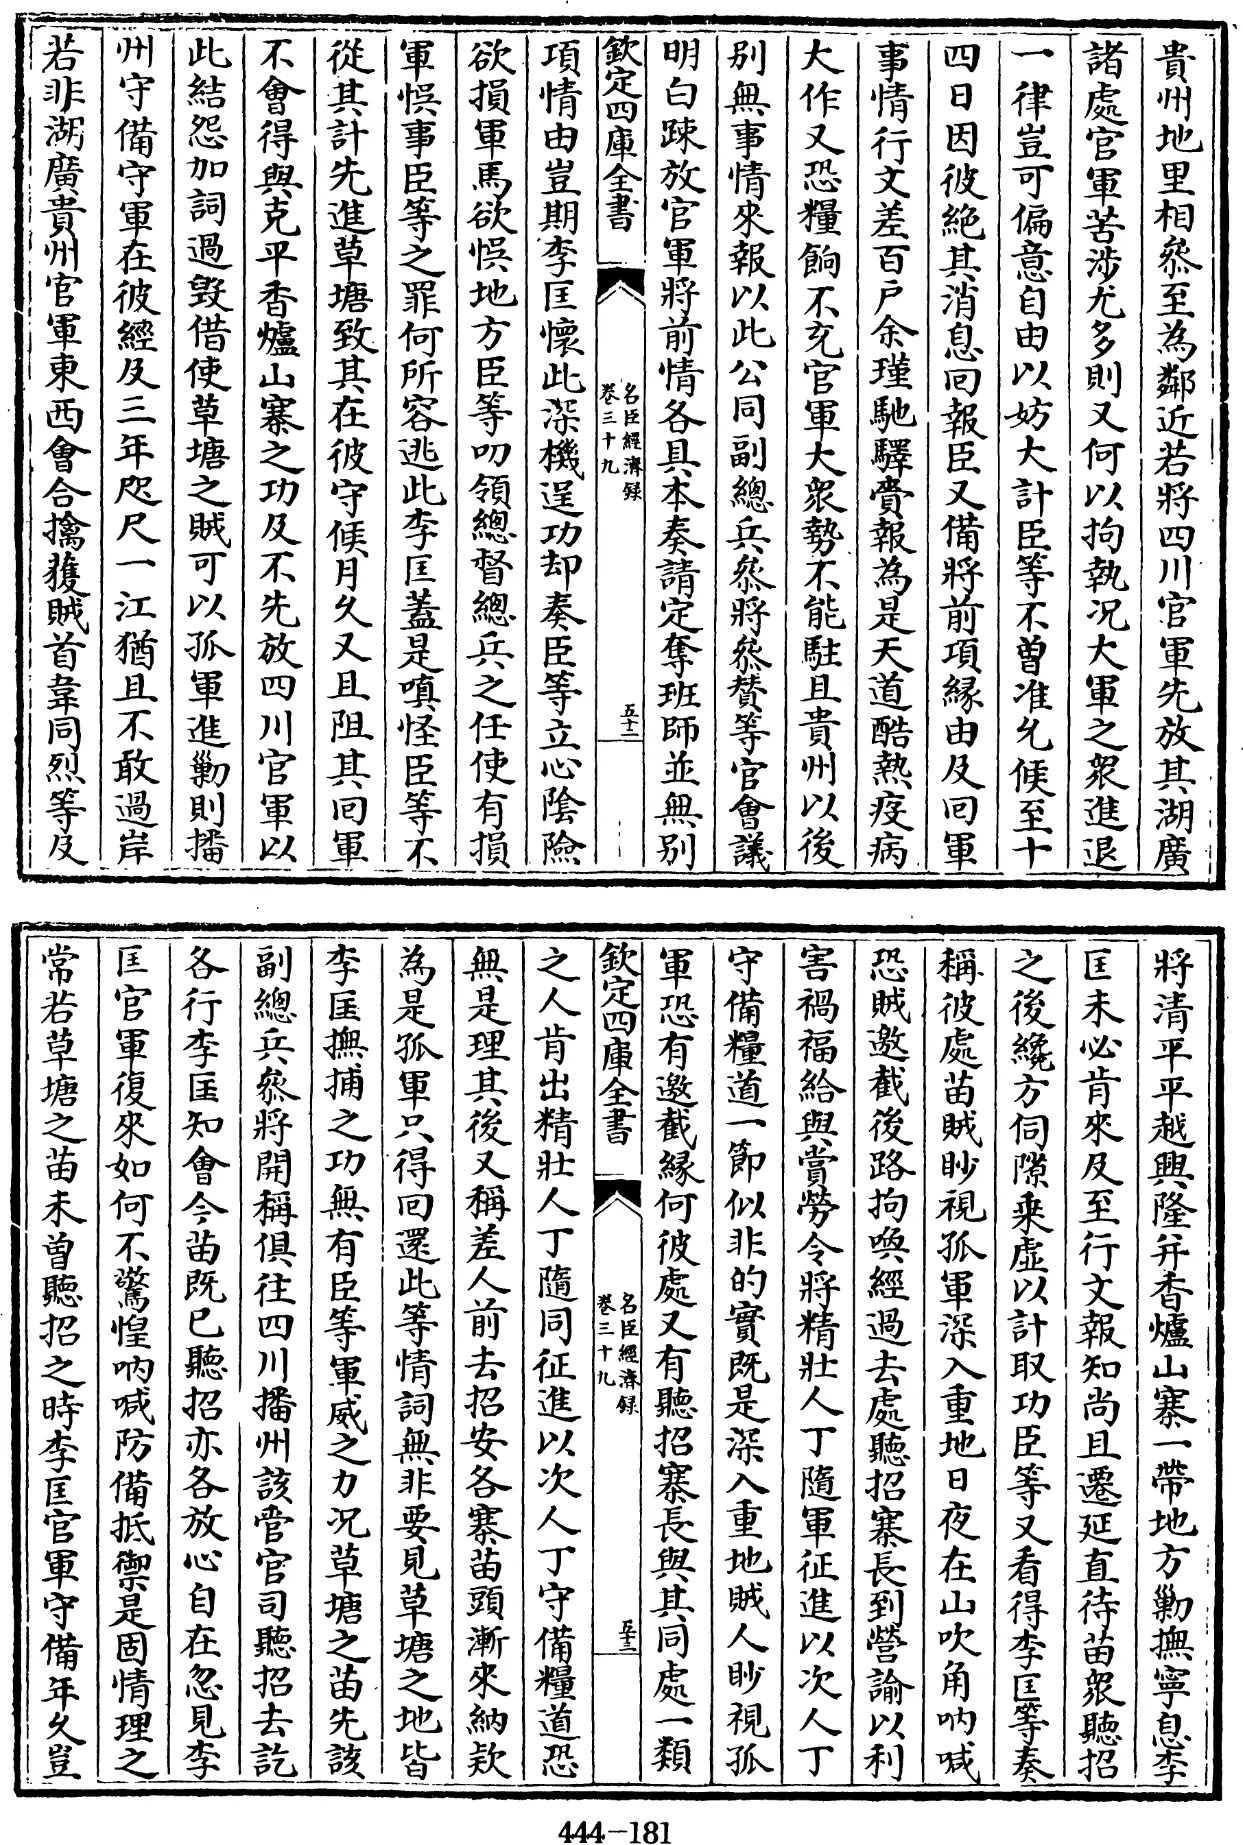 貴州地里相叅至為鄰近若將四川官軍先放其湖廣
諸處官軍苦涉尤多則又何以拘執况大軍之衆進退
一律豈可偏意自由以妨大計臣等不曾准允候至十
四日因彼絶其消息回報臣又備將前項縁由及回軍
事情行文差百户余瑾馳驛賫報為是天道酷熱疫病
大作又恐糧餉不充官軍大衆勢不能駐且貴州以後
别無事情來報以此公同副總兵叅將叅賛等官會議
明白踈放官軍將前情各具本奏請定奪班師並無别
欽定四庫全書
名臣經濟録
卷三十九
五十二
項情由豈期李匡懷此深機逞功却奏臣等立心隂險
欲損軍馬欲悞地方臣等叨領總督總兵之任使有損
軍悞事臣等之罪何所容逃此李匡蓋是嗔怪臣等不
從其計先進草塘致其在彼守候月久又且阻其回軍
不會得與克平香爐山寨之功及不先放四川官軍以
此結怨加詞過毁借使草塘之賊可以孤軍進勦則播
州守備守軍在彼經及三年咫尺一江猶且不敢過岸
若非湖廣貴州官軍東西會合擒獲賊首韋同烈等及
將清平平越興隆并香爐山寨一帶地方勦撫寧息李
匡未必肯來及至行文報知尚且遷延直待苗衆聽招
之後纔方伺隙乘虚以計取功臣等又看得李匡等奏
稱彼處苗賊眇視孤軍深入重地日夜在山吹角吶喊
恐賊邀截後路拘喚經過去處聽招寨長到營諭以利
害禍福給與賞勞令將精壯人丁隨軍征進以次人丁
守備糧道一節似非的實既是深入重地賊人眇視孤
軍恐有邀截縁何彼處又有聽招寨長與其同處一類
欽定四庫全書
名臣經濟録
卷三十九
五十三
之人肯出精壯人丁隨同征進以次人丁守備糧道恐
無是理其後又稱差人前去招安各寨苗頭漸來納欵
為是孤軍只得回還此等情詞無非要見草塘之地皆
李匡撫捕之功無有臣等軍威之力况草塘之苗先該
副總兵叅將開稱俱往四川播州該管官司聽招去訖
各行李匡知會今苗既已聽招亦各放心自在忽見李
匡官軍復來如何不驚惶吶喊防備抵禦是固情理之
常若草塘之苗未曾聽招之時李匡官軍守備年久豈
444-181